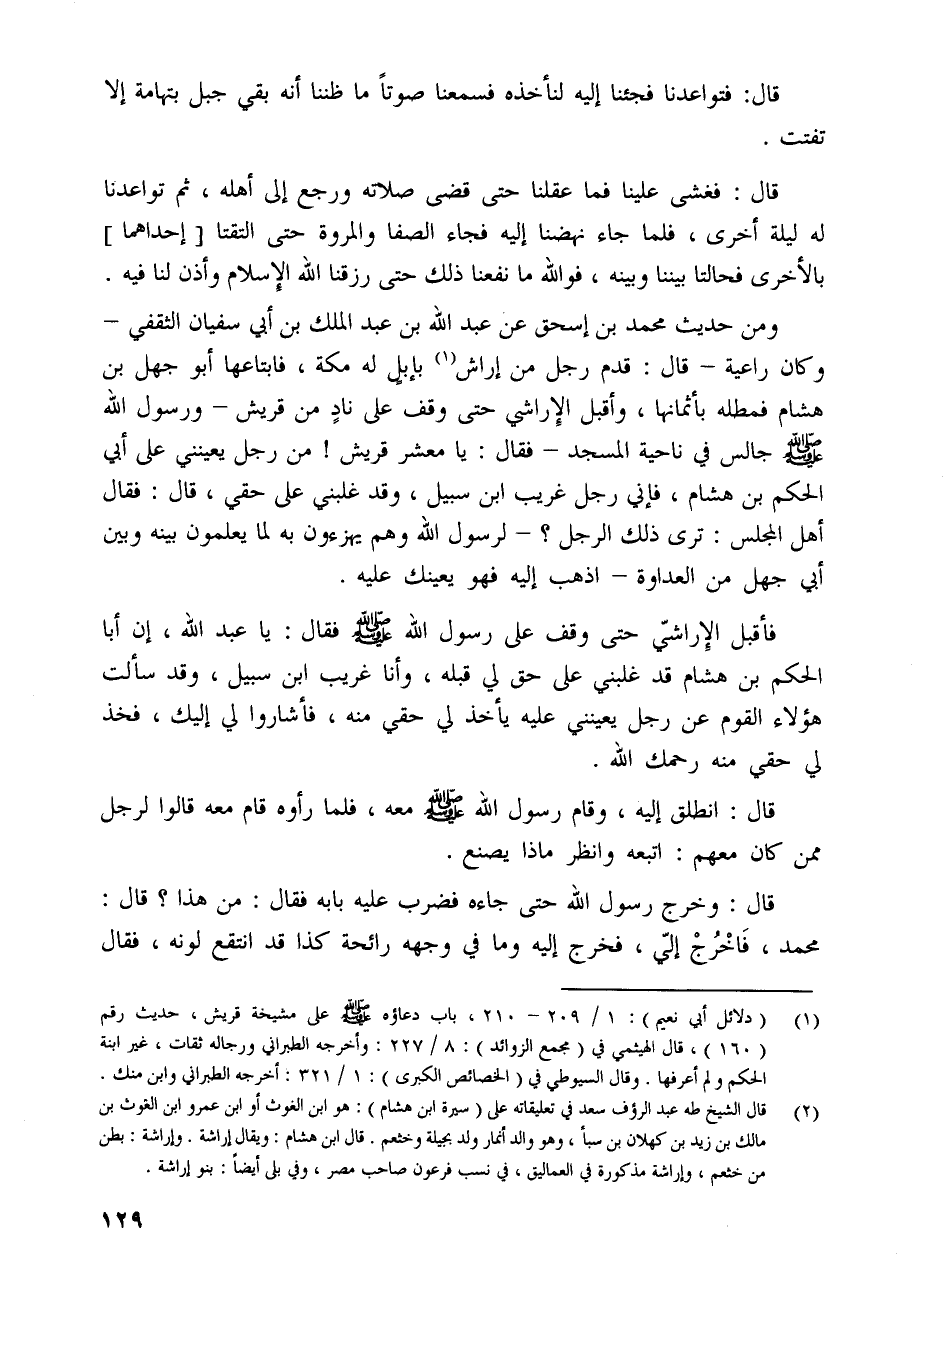 قال: فتواعدنا فجئنا إليه لنأخذه فسمعنا صوتاً ما ظننا أنه بقي جبل بتهامة إلا
تفتت .
قال : فغشى علينا فما عقلنا حتى قضى صلاته ورجع إلى أهله ، ثم تواعدنا
له ليلة أخرى ، فلما جاء نهضنا إليه فجاء الصفا والمروة حتى التقتا [ إحداهما ]
بالأخرى فحالتا بيننا وبينه ، فوالله ما نفعنا ذلك حتى رزقنا الله الإسلام وأذن لنا فيه .
ومن حديث محمد بن إسحق عن عبد الله بن عبد الملك بن أبي سفيان الثقفي –
وكان راعية – قال : قدم رجل من إراش(١) بإبلٍ له مكة ، فابتاعها أبو جهل بن
هشام فمطله بأثمانها ، وأقبل الإراشي حتى وقف على نادٍ من قريش – ورسول الله
ﷺ جالس في ناحية المسجد – فقال : يا معشر قريش ! من رجل يعينني على أبي
الحكم بن هشام ، فإني رجل غريب ابن سبيل ، وقد غلبني على حقي ، قال : فقال
أهل المجلس : ترى ذلك الرجل ؟ – لرسول الله وهم يهزءون به لما يعلمون بينه وبين
أبي جهل من العداوة – اذهب إليه فهو يعينك عليه .
فأقبل الإراشيّ حتى وقف على رسول الله ﷺ فقال : يا عبد الله ، إن أبا
الحكم بن هشام قد غلبني على حق لي قبله ، وأنا غريب ابن سبيل ، وقد سألت
هؤلاء القوم عن رجل يعينني عليه يأخذ لي حقي منه ، فأشاروا لي إليك ، فخذ
لي حقي منه رحمك الله .
قال : انطلق إليه ، وقام رسول الله ﷺ معه ، فلما رأوه قام معه قالوا لرجل
ممن كان معهم : اتبعه وانظر ماذا يصنع .
قال : وخرج رسول الله حتى جاءه فضرب عليه بابه فقال : من هذا ؟ قال :
محمد ، فَاخْرُجْ إليّ ، فخرج إليه وما في وجهه رائحة كذا قد انتقع لونه ، فقال
(١) ( دلائل أبي نعيم ) : ١ / ٢٠٩ – ٢١٠ ، باب دعاؤه ﷺ على مشيخة قريش ، حديث رقم
( ١٦٠ ) ، قال الهيثمي في ( مجمع الزوائد ) : ٨ / ٢٢٧ : وأخرجه الطبراني ورجاله ثقات ، غير ابنة
الحكم ولم أعرفها . وقال السيوطي في ( الخصائص الكبرى ) : ١ / ٣٢١ : أخرجه الطبراني وابن منك .
(٢) قال الشيخ طه عبد الرؤف سعد في تعليقاته على ( سيرة ابن هشام ) : هو ابن الغوث أو ابن عمرو ابن الغوث بن
مالك بن زيد بن كهلان بن سبأ ، وهو والد أنمار ولد بجيلة وخثعم . قال ابن هشام : ويقال إراشة . وإراشة : بطن
من خثعم ، وإراشة مذكورة في العماليق ، في نسب فرعون صاحب مصر ، وفي بلى أيضاً : بنو إراشة .
١٢٩